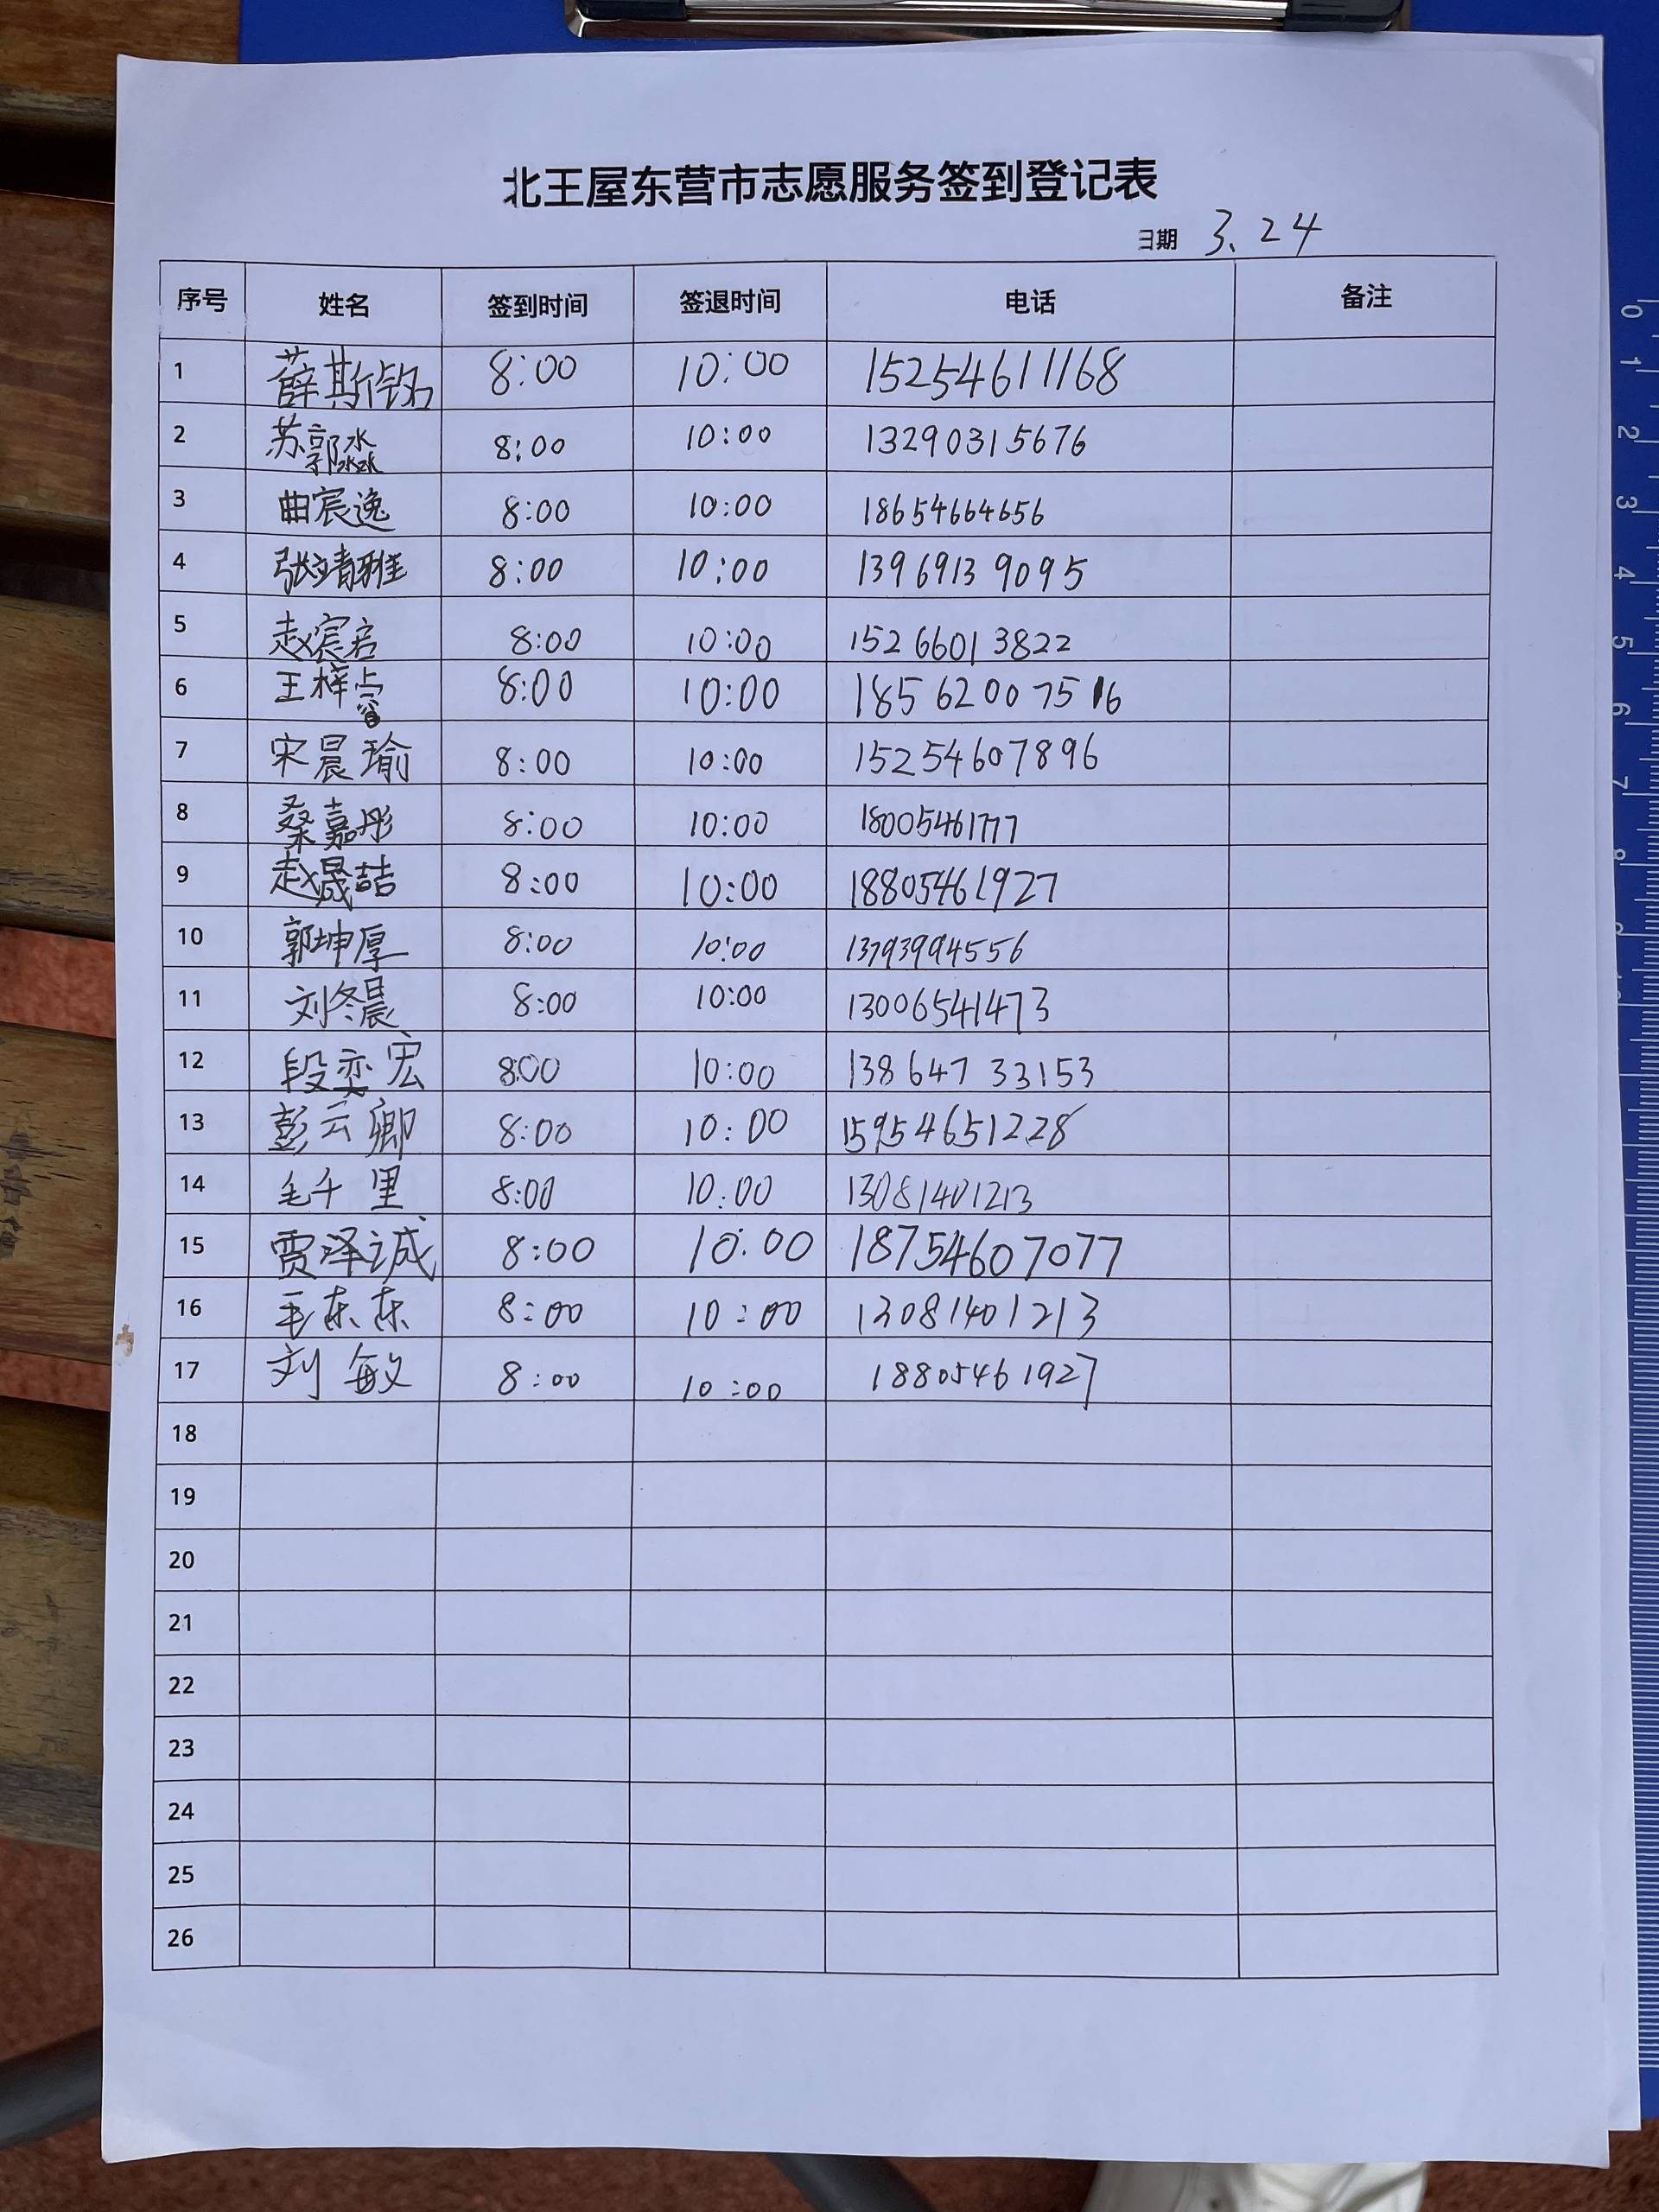 北王屋东营市志愿服务签到登记表
日期 3.24
序号 姓名 签到时间 签退时间 电话 备注
1 薛斯铭 8:00 10:00 15254611168
2 苏郭淼 8:00 10:00 13290315676
3 曲宸逸 8:00 10:00 18654664656
4 张靖雅 8:00 10:00 13969139095
5 赵宸启 8:00 10:00 15266013822
6 王梓睿 8:00 10:00 18562007516
7 宋晨瑜 8:00 10:00 15254607896
8 桑嘉彤 8:00 10:00 18005461777
9 赵晟喆 8:00 10:00 18805461927
10 郭坤厚 8:00 10:00 13793994556
11 刘冬晨 8:00 10:00 13006541473
12 段奕宏 8:00 10:00 13864733153
13 彭云卿 8:00 10:00 15954651228
14 毛千里 8:00 10:00 13081401213
15 贾泽诚 8:00 10:00 18754607077
16 毛东东 8:00 10:00 13081401213
17 刘敏 8:00 10:00 18805461927
18
19
20
21
22
23
24
25
26
0
1
2
3
4
5
6
7
8